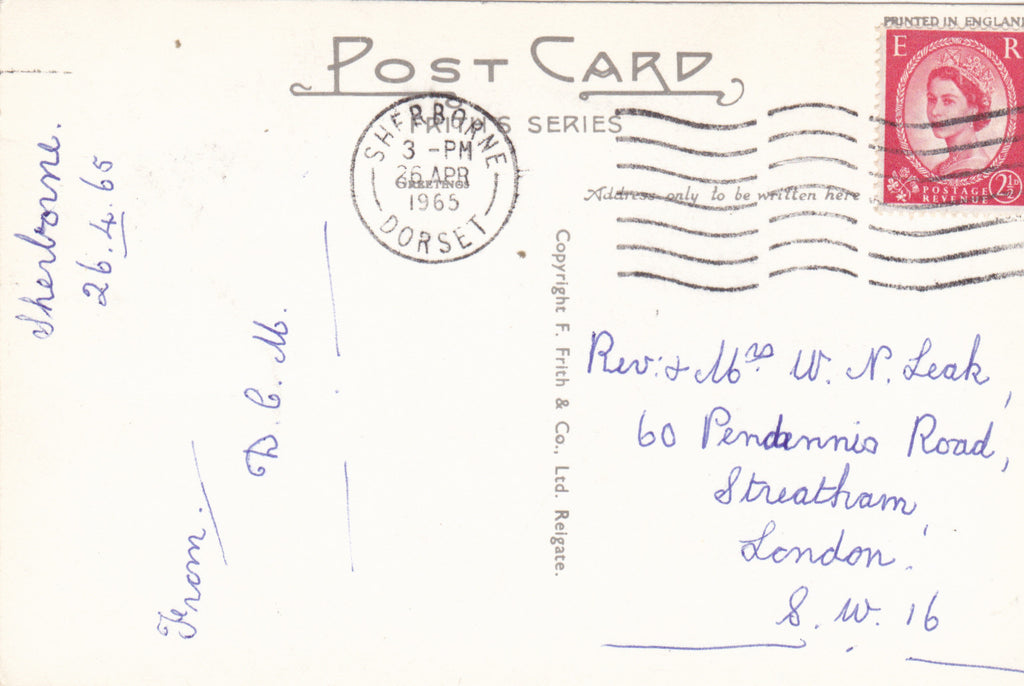 PRINTED IN ENGLAND
POST CARD
FRITH'S SERIES
GREETINGS
Address only to be written here
SHERBORNE
3 - PM
26 APR
1965
DORSET
E R
POSTAGE
REVENUE
2½D
Sherborne.
26.4.65
From.
D. C. M.
Copyright F. Frith & Co., Ltd. Reigate.
Rev: & Mrs W. N. Leak,
60 Pendennis Road,
Streatham,
London.
S. W. 16